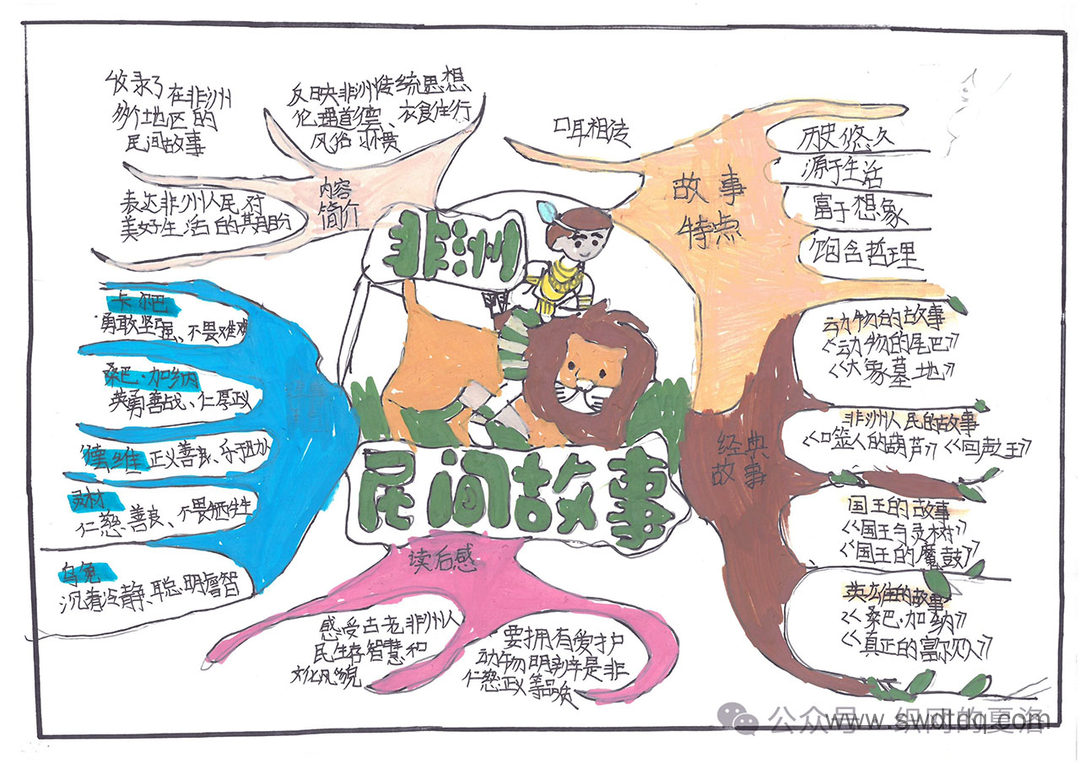 非洲
民间故事
内容
简介
收录了在非洲
多个地区的
民间故事
反映非洲传统思想
伦理道德、衣食住行
风俗习惯
表达非洲人民对
美好生活的期盼
故事
特点
口耳相传
历史悠久
源于生活
富于想象
饱含哲理
经典
故事
动物的故事
《动物的尾巴》
《大象墓地》
非洲人民的故事
《回声王》
国王的故事
《国王与灵树》
《国王的魔鼓》
英雄的故事
《桑巴·加纳》
《真正的富尔贝人》
卡尔巴
勇敢坚强、不畏难难
桑巴·加纳
英勇善战、仁厚正义
德维 正义善良、乐于助人
灵树
仁慈善良、不畏牺牲
乌龟
沉着冷静、聪明睿智
读后感
感受古老非洲人
民生存智慧和
文化风貌
要拥有爱护
动物明辨是非
仁慈正义等品质
公众号 织网的夏洛
www.swdtdq.com